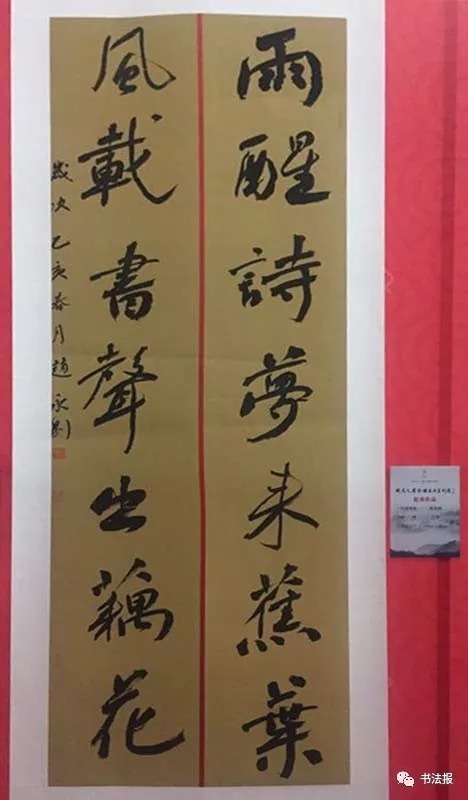 雨醒詩夢来蕉葉
風載書聲出藕花
歲次己亥春月趙永剛
书法报